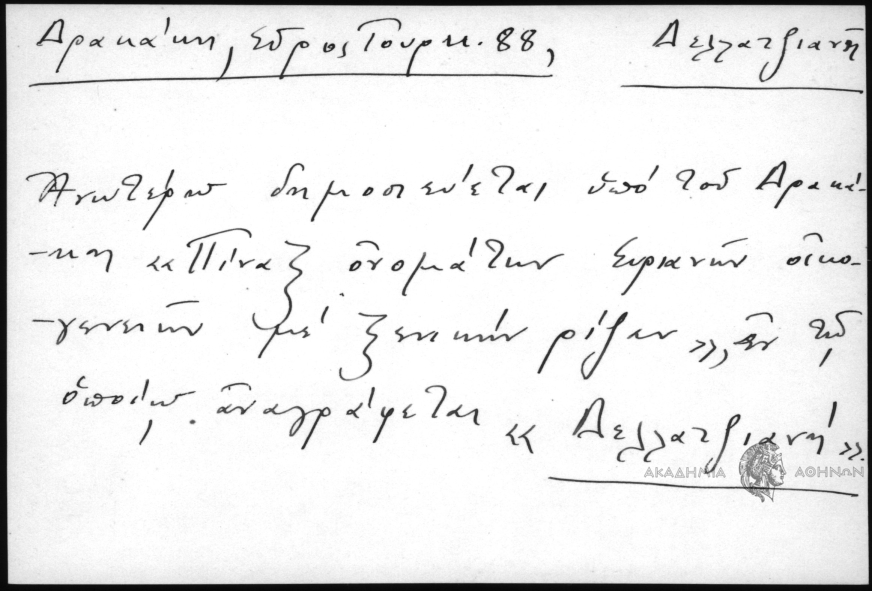 Δρακάκη, Σῦρος Τουρκ. 88, Δελλατζιανῆ
Ἀνωτέρω δημοσιεύεται ὑπό τοῦ Δρακά-
-κη «Πίναξ ὀνομάτων Συριανῶν οἰκο-
-γενειῶν μέ ξενικήν ρίζαν», ἐν τῷ
ὁποίῳ ἀναγράφεται «Δελλατζιανή».
ΑΚΑΔΗΜΙΑ ΑΘΗΝΩΝ